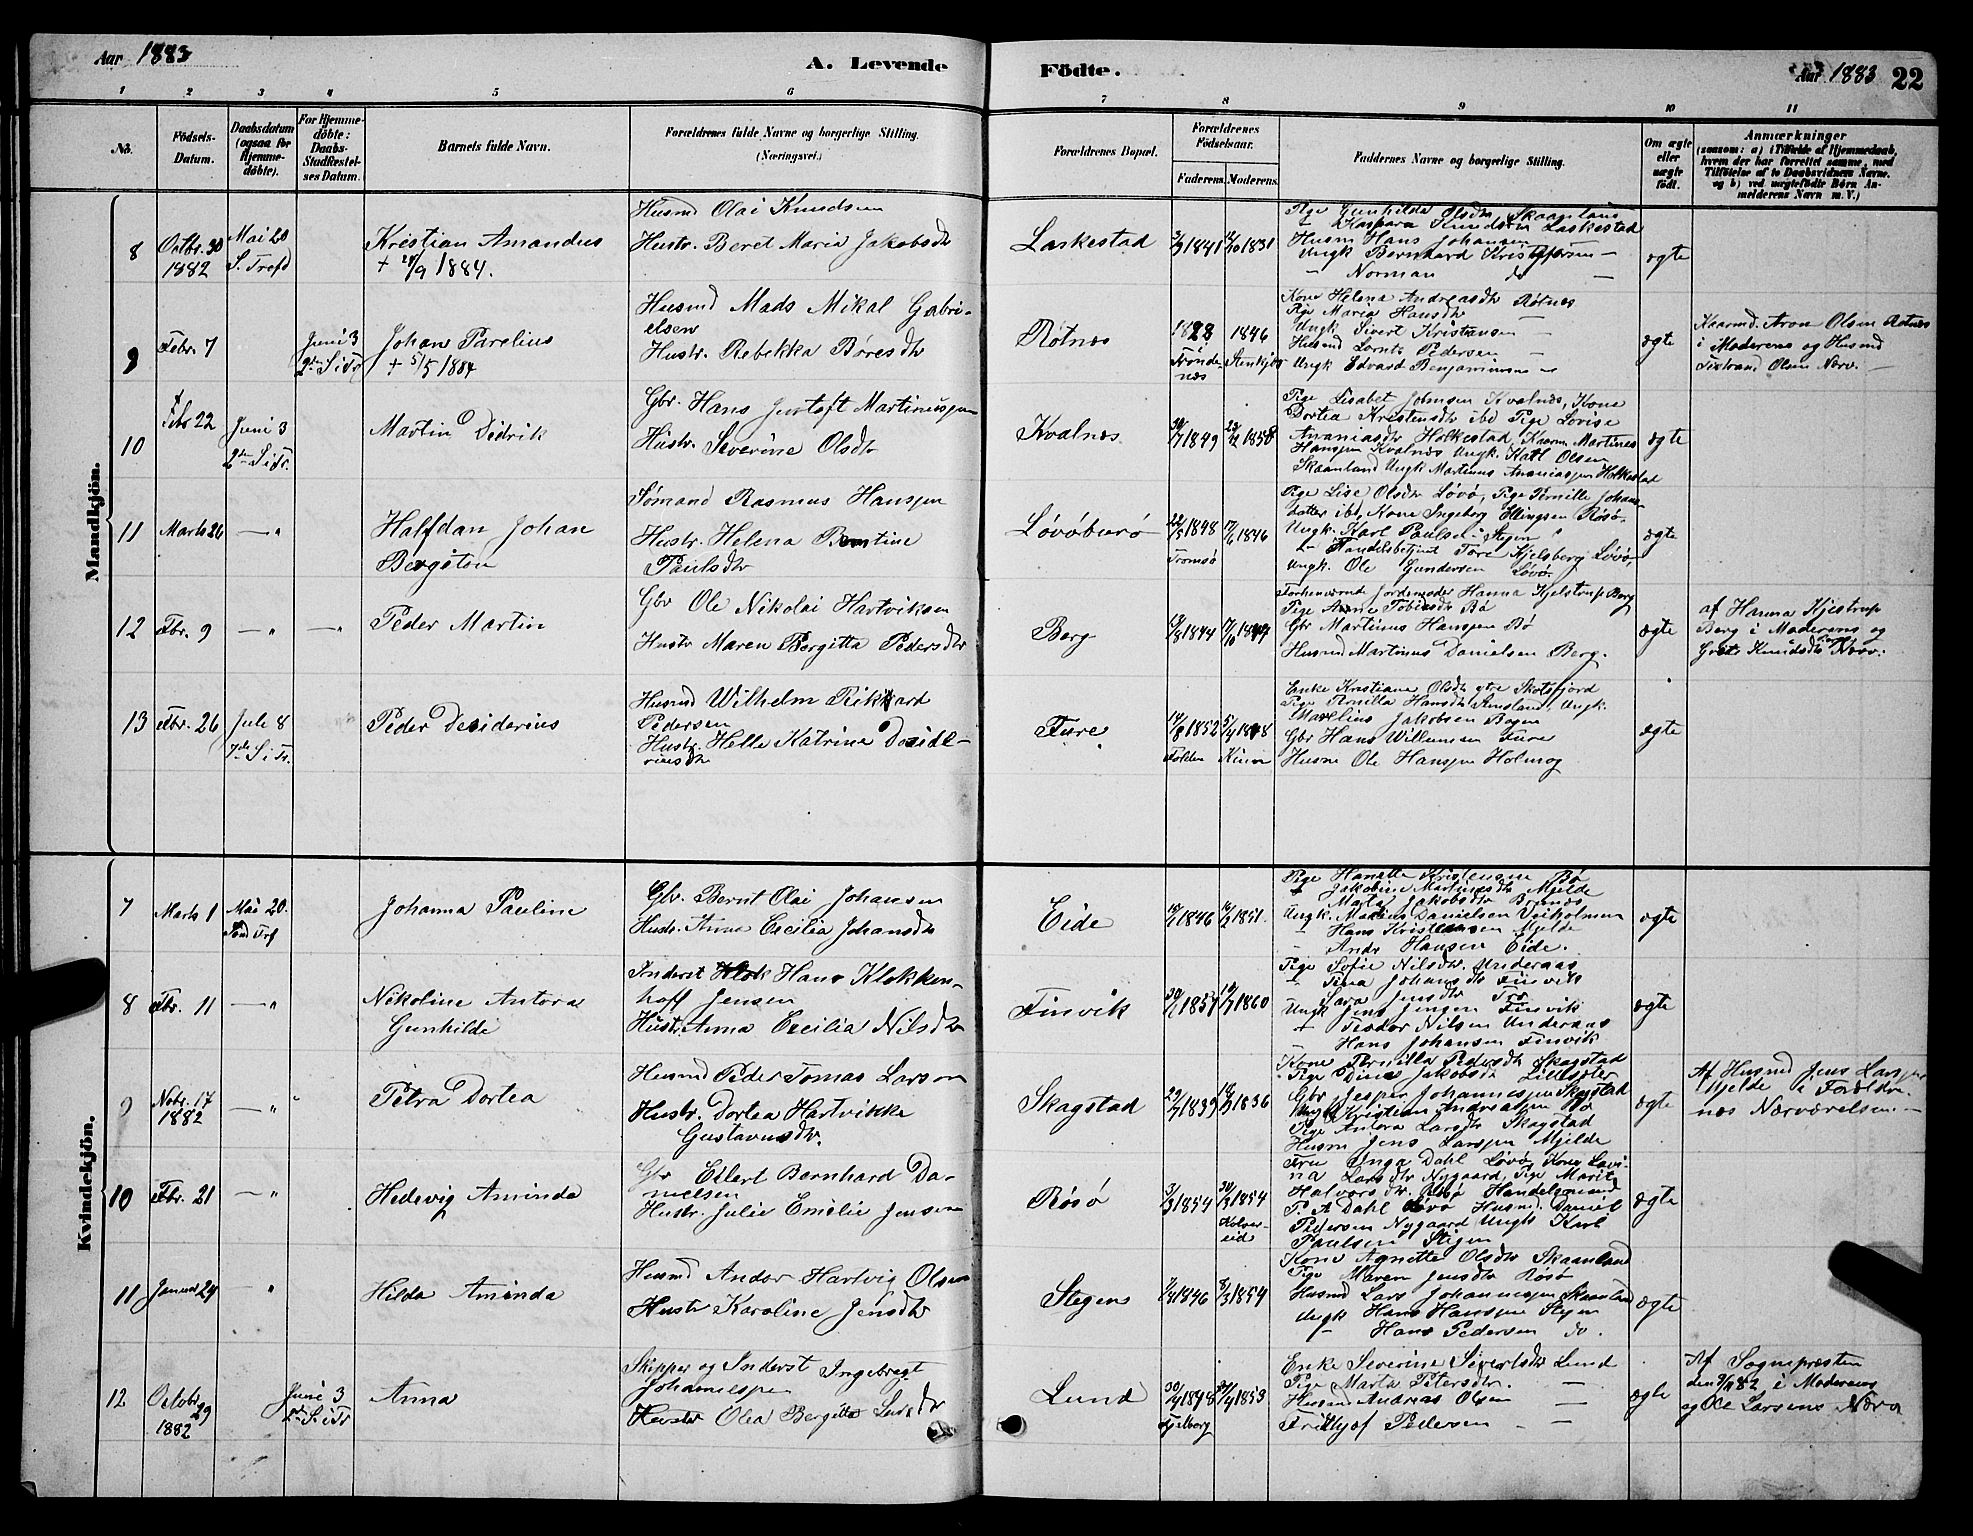 Aar 1883
A. Levende
Födte.
Aar 1883 22
1 2 3 4 5 6 7 8 9 10 11
No.
Födsels-Datum.
Daabsdatum (ogsaa for Hjemme-döbte).
For Hjemme-döbte: Daabs-Stadfæstel-ses Datum.
Barnets fulde Navn.
Forældrenes fulde Navne og borgerlige Stilling.
(Næringsvei.)
Forældrenes Bopæl.
Forældrenes Födselsaar.
Faderens. Moderens.
Faddernes Navne og borgerlige Stilling.
Om ægte eller uægte födt.
Anmærkninger
(saasom: a) i Tilfælde af Hjemmedaab, hvem der har forrettet samme, med Tilföielse af to Daabsvidners Navne. og b) ved uægtefödte Börn An-melderens Navn m. V.)
Mandkjön.
8
Octbr. 30
1882
Mai 20
S. Trefd
Kristian Amandus
+ 28/9 1884.
Husmd Olai Knudsen
Hustr. Beret Maria Jakobsdtr
Laskestad
1841
1831
Pige Gunhilda Olsdtr Skaanland
Kaspara Knudsen Laskestad
Husm Hans Johansen
Ungk Bernhard Kristoffersen —
— Norman do —
ægte
9
Febr. 7
Juni 3
2den S i Tr
Johan Parelius
+ 5/5 1884
Husmd Mads Mikal Gabri-
elsen
Hustr. Rebekka Böresdtr
Rötnæs
1828
1846
Kone Helena Andreasdtr Rötnæs
Pige Maria Hansdtr —
Ungk Sivert Kristiansen —
Husmd Lornts Pedersen —
Ungk Edvard Benjaminsen —
ægte
Kaarmd. Aron Olsen Rötnæs
i Moderens og Husmd
Olsens Nærv. —
10
Febr 22
Juni 3
2den S i Tr.
Martin Didrik
Gbr. Hans Gustaft Martinussen
Hustr. Severine Olsdtr
Kvalnæs
1849
1858
Pige Lisabet Johnsen Kvalnæs, Kone
Dortea Kristensdtr ibd Pige Lovise
Ananiasdtr Holkestad, Kaarm. Martines
Hanssen Kvalnæs Ungk. Karl Olsen
Skaanland Ungk Martinus Ananiassen Holkestad
ægte
11
Marts 26
— "
Halfdan Johan
Bergiton
Sömand Rasmus Hanssen
Hustr. Helena Berntine
Paulsdtr
Lövöburö
22/5 1848
Tromsö
17/6 1846
Pige Lise Olsdtr Lövö, Pige Pernille Johans
datter ibd, Kone Ingeborg Ellingsen Rösö.
Ungk. Karl Paulsen Stegen
— Handelsbetjent Tore Kjelsberg Lövö,
Ungk. Ole Gundersen Lövö.
ægte
12
Fbr. 9
— "
— "
Peder Martin
Gbr Ole Nikolai Hartviksen
Hustr Maren Bergitta Pedersdtr
Berg
1844
Forhenværende Jordemoder Hanna Kjelstrup Berg
Pige Anne Tobiasdtr Bö
Gbr Martinus Hanssen Bö
Husmd Martinus Danielsen Berg.
ægte
af Hanna Kjelstrup
Berg i Moderens og
Knudsdtr Nærv.
13
Fbr. 26
Jule 8
7de S i Tr.
Peder Desiderius
Husmd Wilhelm Rikkard
Pedersen
Hustr. Helle Katrine Deside-
riusdtr
Fure
14/8 1852
Folden
Enke Kristiane Olsdtr Skotsfjord
Pige Pernilla Hansdtr Ungk.
Marelius Jakobsen Bogen
Gbr Hans Willumsen Fure
Husm Ole Hanssen Holmog
ægte
Kvindekjön.
7
Marts 1
Mai 20.
Johanna Pauline
Gbr. Bernt Olai Johansen
Hustr. Anna Cecilia Johansdtr
Eide
1846
1851.
Pige Hanette Kristensen Bö
— Jakobine Martinesdtr Mjelde
Marta Jakobsdtr Brennæs
Ungk. Martius Danielsen Veiholmen
— Hans Kristensen Mjelde
— Andr Hansen Eide.
ægte
8
Fbr. 11
— "
Nikoline Antora
Gunhilde
Inderst Hans Klokken-
hoff Jensen
Hustr. Anna Cecilia Nilsdtr
Finvik
1857
1860
Pige Sofie Nilsdtr. Underaas
— Tina Johansdtr Finvik
Sara Jensdtr Trö
Ungk Jens Jensen Finvik
— Teodor Nilsen Underaas
Hans Johansen Finvik
ægte
9
Nobr. 17
1882
— "
"
Petra Dortea
Husmd Peder Tomas Larsen
Hustr. Dortea Hartvikke
Gustavusdtr.
Skagstad
1839
1836
Kone Pernilla Pedersdtr Skagstad
Pige Dina Jakobsdtr
Gbr Jesper Johannessen Skagstad
Ungk Kristian Andreassen Bö
Pige Antora Larsdtr Skagstad
Husm Jens Larssen Mjelde
ægte
Af Husmd Jens Larssen
Mjelde i Forældre-
nes Nærværelse. —
10
Fbr. 21
— "
Hedevig Aminda
Gbr Eilert Bernhard Da-
nielsen
Hustr. Julie Emelie Jensen
Rösö
1854
1854
Kolver-
eid
Fru Unga Dahl Lövö, Kone Lovi-
na Larsdtr Nygaard, Pige Marit
Halvorsdtr. Rösö Handelsmand
P. A Dahl Lövö Husmd. Daniel
Pedersen Nygaard Ungk Karl
Paulsen Stegen
ægte
11
Januar 29
"
Hilda Aminda
Husmd Andor Hartvig Olsen
Hustr Karoline Jensdtr
Stegen
1846
8/3 1854
Kone Agnitte Olsdtr Skaanland
Pige Maren Jensdtr Rösö
Husmd Lars Johannessen Skaanland
Ungk Hans Hanssen Stegen
— Hans Pedersen do.
ægte
12
Octobr 29
1882
Juni 3
2den S. i Tr
Anna
Skipper og Inderst Ingebregt
Johannessen
Hustr Olea Bergitte Larsdtr
Lund
1848
1853
Enke Severine Sivertsdtr Lund
Pige Marta Petersdtr. —
Husmd Andreas Olsen —
Fridthjof Pedersen — —
ægte
Af Sognepræsten
i Moderens
og Ole Larsens Nærv